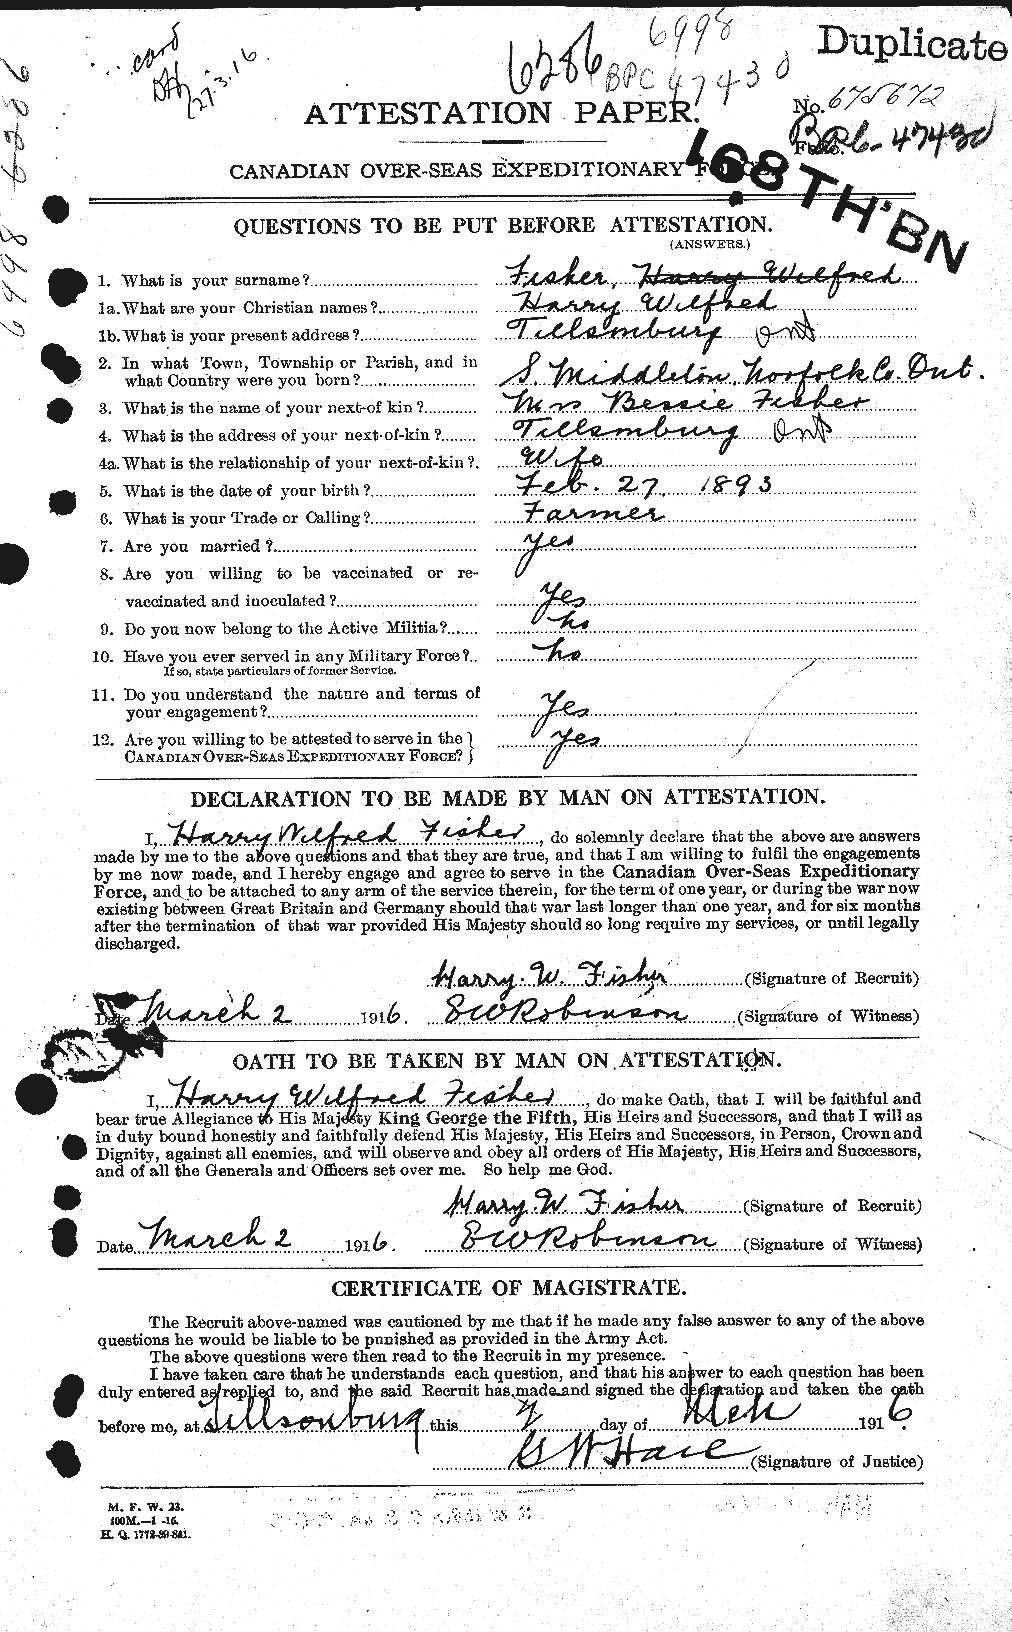 ...card
DH
27-3-16
6286
6998
BPC 47430
Duplicate
6998 6286
ATTESTATION PAPER.
No. 675672
Folio.
BPC-47430
CANADIAN OVER-SEAS EXPEDITIONARY FORCE.
168TH'BN
QUESTIONS TO BE PUT BEFORE ATTESTATION.
(ANSWERS.)
1. What is your surname? Fisher, Harry Wilfred
1a. What are your Christian names? Harry Wilfred
1b. What is your present address? Tillsonburg Ont
2. In what Town, Township or Parish, and in
what Country were you born? S. Middleton, Norfolk Co. Ont.
3. What is the name of your next-of kin? Mrs Bessie Fisher
4. What is the address of your next-of-kin? Tillsonburg Ont
4a. What is the relationship of your next-of-kin? Wife
5. What is the date of your birth? Feb. 27, 1893
6. What is your Trade or Calling? Farmer
7. Are you married? yes
8. Are you willing to be vaccinated or re-
vaccinated and inoculated? Yes
9. Do you now belong to the Active Militia? no
10. Have you ever served in any Military Force? no
If so, state particulars of former Service.
11. Do you understand the nature and terms of
your engagement? Yes
12. Are you willing to be attested to serve in the
CANADIAN OVER-SEAS EXPEDITIONARY FORCE? yes
DECLARATION TO BE MADE BY MAN ON ATTESTATION.
I, Harry Wilfred Fisher, do solemnly declare that the above are answers
made by me to the above questions and that they are true, and that I am willing to fulfil the engagements
by me now made, and I hereby engage and agree to serve in the Canadian Over-Seas Expeditionary
Force, and to be attached to any arm of the service therein, for the term of one year, or during the war now
existing between Great Britain and Germany should that war last longer than one year, and for six months
after the termination of that war provided His Majesty should so long require my services, or until legally
discharged.
Harry. W. Fisher (Signature of Recruit)
Date March 2 1916. E W Robinson (Signature of Witness)
OATH TO BE TAKEN BY MAN ON ATTESTATION.
I, Harry Wilfred Fisher, do make Oath, that I will be faithful and
bear true Allegiance to His Majesty King George the Fifth, His Heirs and Successors, and that I will as
in duty bound honestly and faithfully defend His Majesty, His Heirs and Successors, in Person, Crown and
Dignity, against all enemies, and will observe and obey all orders of His Majesty, His Heirs and Successors,
and of all the Generals and Officers set over me. So help me God.
Harry. W Fisher (Signature of Recruit)
Date March 2 1916. E W Robinson (Signature of Witness)
CERTIFICATE OF MAGISTRATE.
The Recruit above-named was cautioned by me that if he made any false answer to any of the above
questions he would be liable to be punished as provided in the Army Act.
The above questions were then read to the Recruit in my presence.
I have taken care that he understands each question, and that his answer to each question has been
duly entered as replied to, and the said Recruit has made and signed the declaration and taken the oath
before me, at Tillsonburg this 2 day of Mch 1916.
G W Hare (Signature of Justice)
M. F. W. 23.
100M.—1 -16.
H. Q. 1772-39-841.